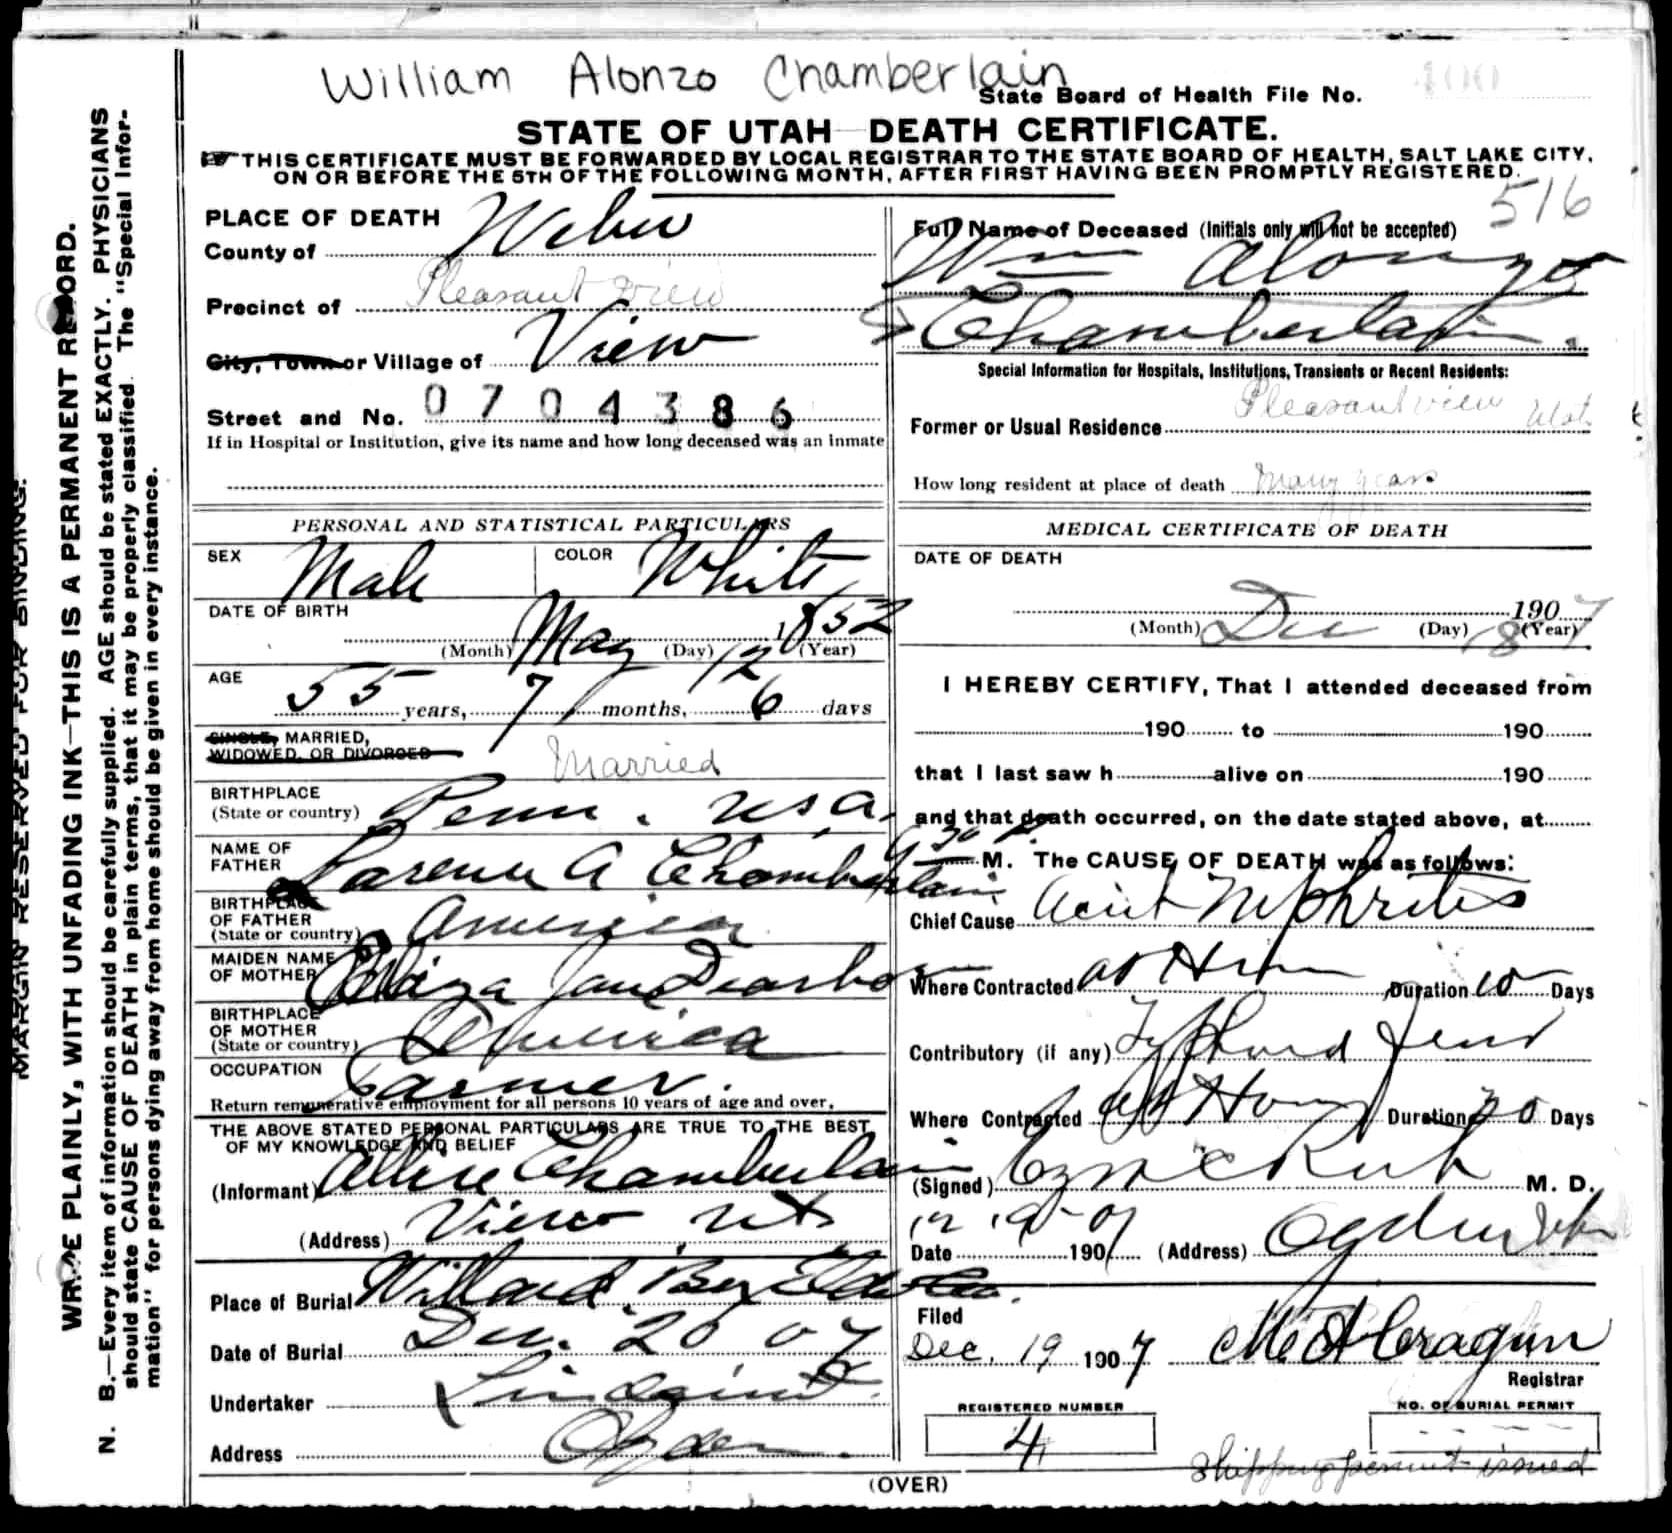 William Alonzo Chamberlain
State Board of Health File No.
STATE OF UTAH—DEATH CERTIFICATE.
THIS CERTIFICATE MUST BE FORWARDED BY LOCAL REGISTRAR TO THE STATE BOARD OF HEALTH, SALT LAKE CITY,
ON OR BEFORE THE 5TH OF THE FOLLOWING MONTH, AFTER FIRST HAVING BEEN PROMPTLY REGISTERED.
516
PLACE OF DEATH
County of Weber
Precinct of Pleasant View
City, Town or Village of View
Street and No. 0704386
If in Hospital or Institution, give its name and how long deceased was an inmate
PERSONAL AND STATISTICAL PARTICULARS
SEX Male COLOR White
DATE OF BIRTH
(Month) May (Day) 12 1852 (Year)
AGE
55 years, 7 months, 6 days
SINGLE, MARRIED,
WIDOWED, OR DIVORCED Married
BIRTHPLACE
(State or country) Penn. U.S.A.
NAME OF
FATHER A Chamberlain
BIRTHPLACE
OF FATHER
(State or country) America
MAIDEN NAME
OF MOTHER Eliza Jane
BIRTHPLACE
OF MOTHER
(State or country) America
OCCUPATION Farmer.
Return remunerative employment for all persons 10 years of age and over.
THE ABOVE STATED PERSONAL PARTICULARS ARE TRUE TO THE BEST
OF MY KNOWLEDGE AND BELIEF
(Informant) Chamberlain
(Address) View Ut
Place of Burial Willard. Box Elder Co.
Date of Burial Dec. 20 07
Undertaker Lindquist
Address Ogden.
Full Name of Deceased (Initials only will not be accepted)
Wm Alonzo
Chamberlain.
Special Information for Hospitals, Institutions, Transients or Recent Residents:
Former or Usual Residence Pleasant view Utah
How long resident at place of death Many years
MEDICAL CERTIFICATE OF DEATH
DATE OF DEATH
1907
(Month) Dec (Day) 18 (Year)
I HEREBY CERTIFY, That I attended deceased from
190 to 190
that I last saw h alive on 190
and that death occurred, on the date stated above, at
9 30 P. M. The CAUSE OF DEATH was as follows:
Chief Cause Acute Nephritis
Where Contracted at Home Duration 10 Days
Contributory (if any) Typhoid Fever
Where Contracted at Home Duration 20 Days
(Signed) M. D.
Date 12 19-07 1907 (Address) Ogden Utah
Filed
Dec. 19 1907 Cragun
Registrar
REGISTERED NUMBER
4
NO. OF BURIAL PERMIT
Shipping permit issued
(OVER)
MARGIN RESERVED FOR BINDING.
WRITE PLAINLY, WITH UNFADING INK—THIS IS A PERMANENT RECORD.
N. B.—Every item of information should be carefully supplied. AGE should be stated EXACTLY. PHYSICIANS
should state CAUSE OF DEATH in plain terms, that it may be properly classified. The "Special Infor-
mation" for persons dying away from home should be given in every instance.